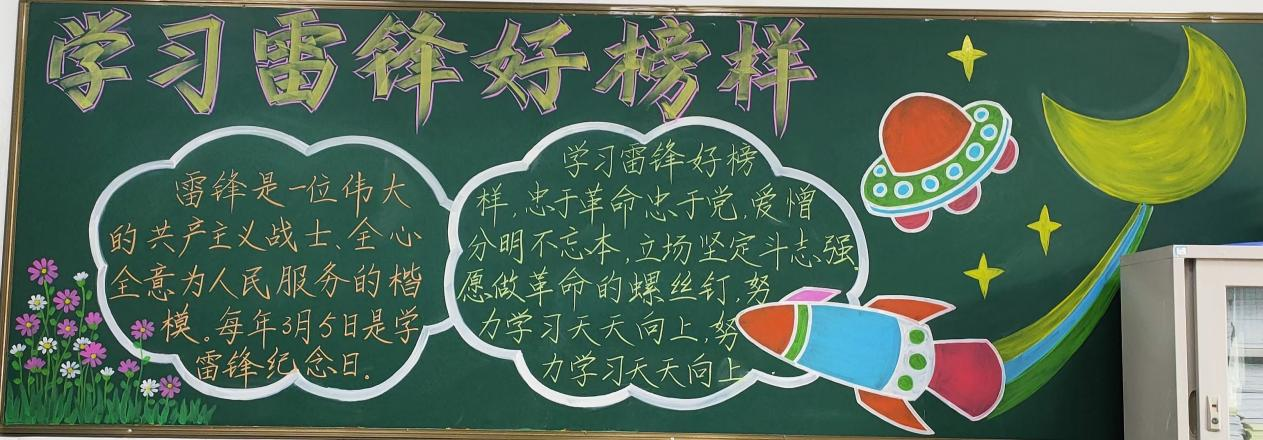 学习雷锋好榜样
雷锋是一位伟大
的共产主义战士、全心
全意为人民服务的楷
模。每年3月5日是学
雷锋纪念日.
学习雷锋好榜
样,忠于革命忠于党,爱憎
分明不忘本,立场坚定斗志强,
愿做革命的螺丝钉,努
力学习天天向上,努
力学习天天向上...